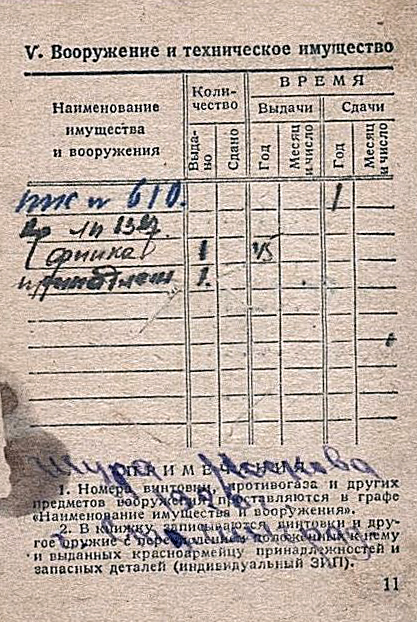 V. Вооружение и техническое имущество
Наименование имущества и вооружения
Коли-
чество
ВРЕМЯ
Выдачи
Сдачи
Выда-
но
Сдано
Год
Месяц
и число
Год
Месяц
и число
№ 610. 1
(финка) 1 45
1.
Шура
ПРИМЕЧАНИЯ
1. Номера винтовки, противогаза и других
предметов вооружения проставляются в графе
«Наименование имущества и вооружения».
2. В книжку записываются винтовки и дру-
гое оружие с перечислением положенных к нему
и выданных красноармейцу принадлежностей и
запасных деталей (индивидуальный ЗИП).
11